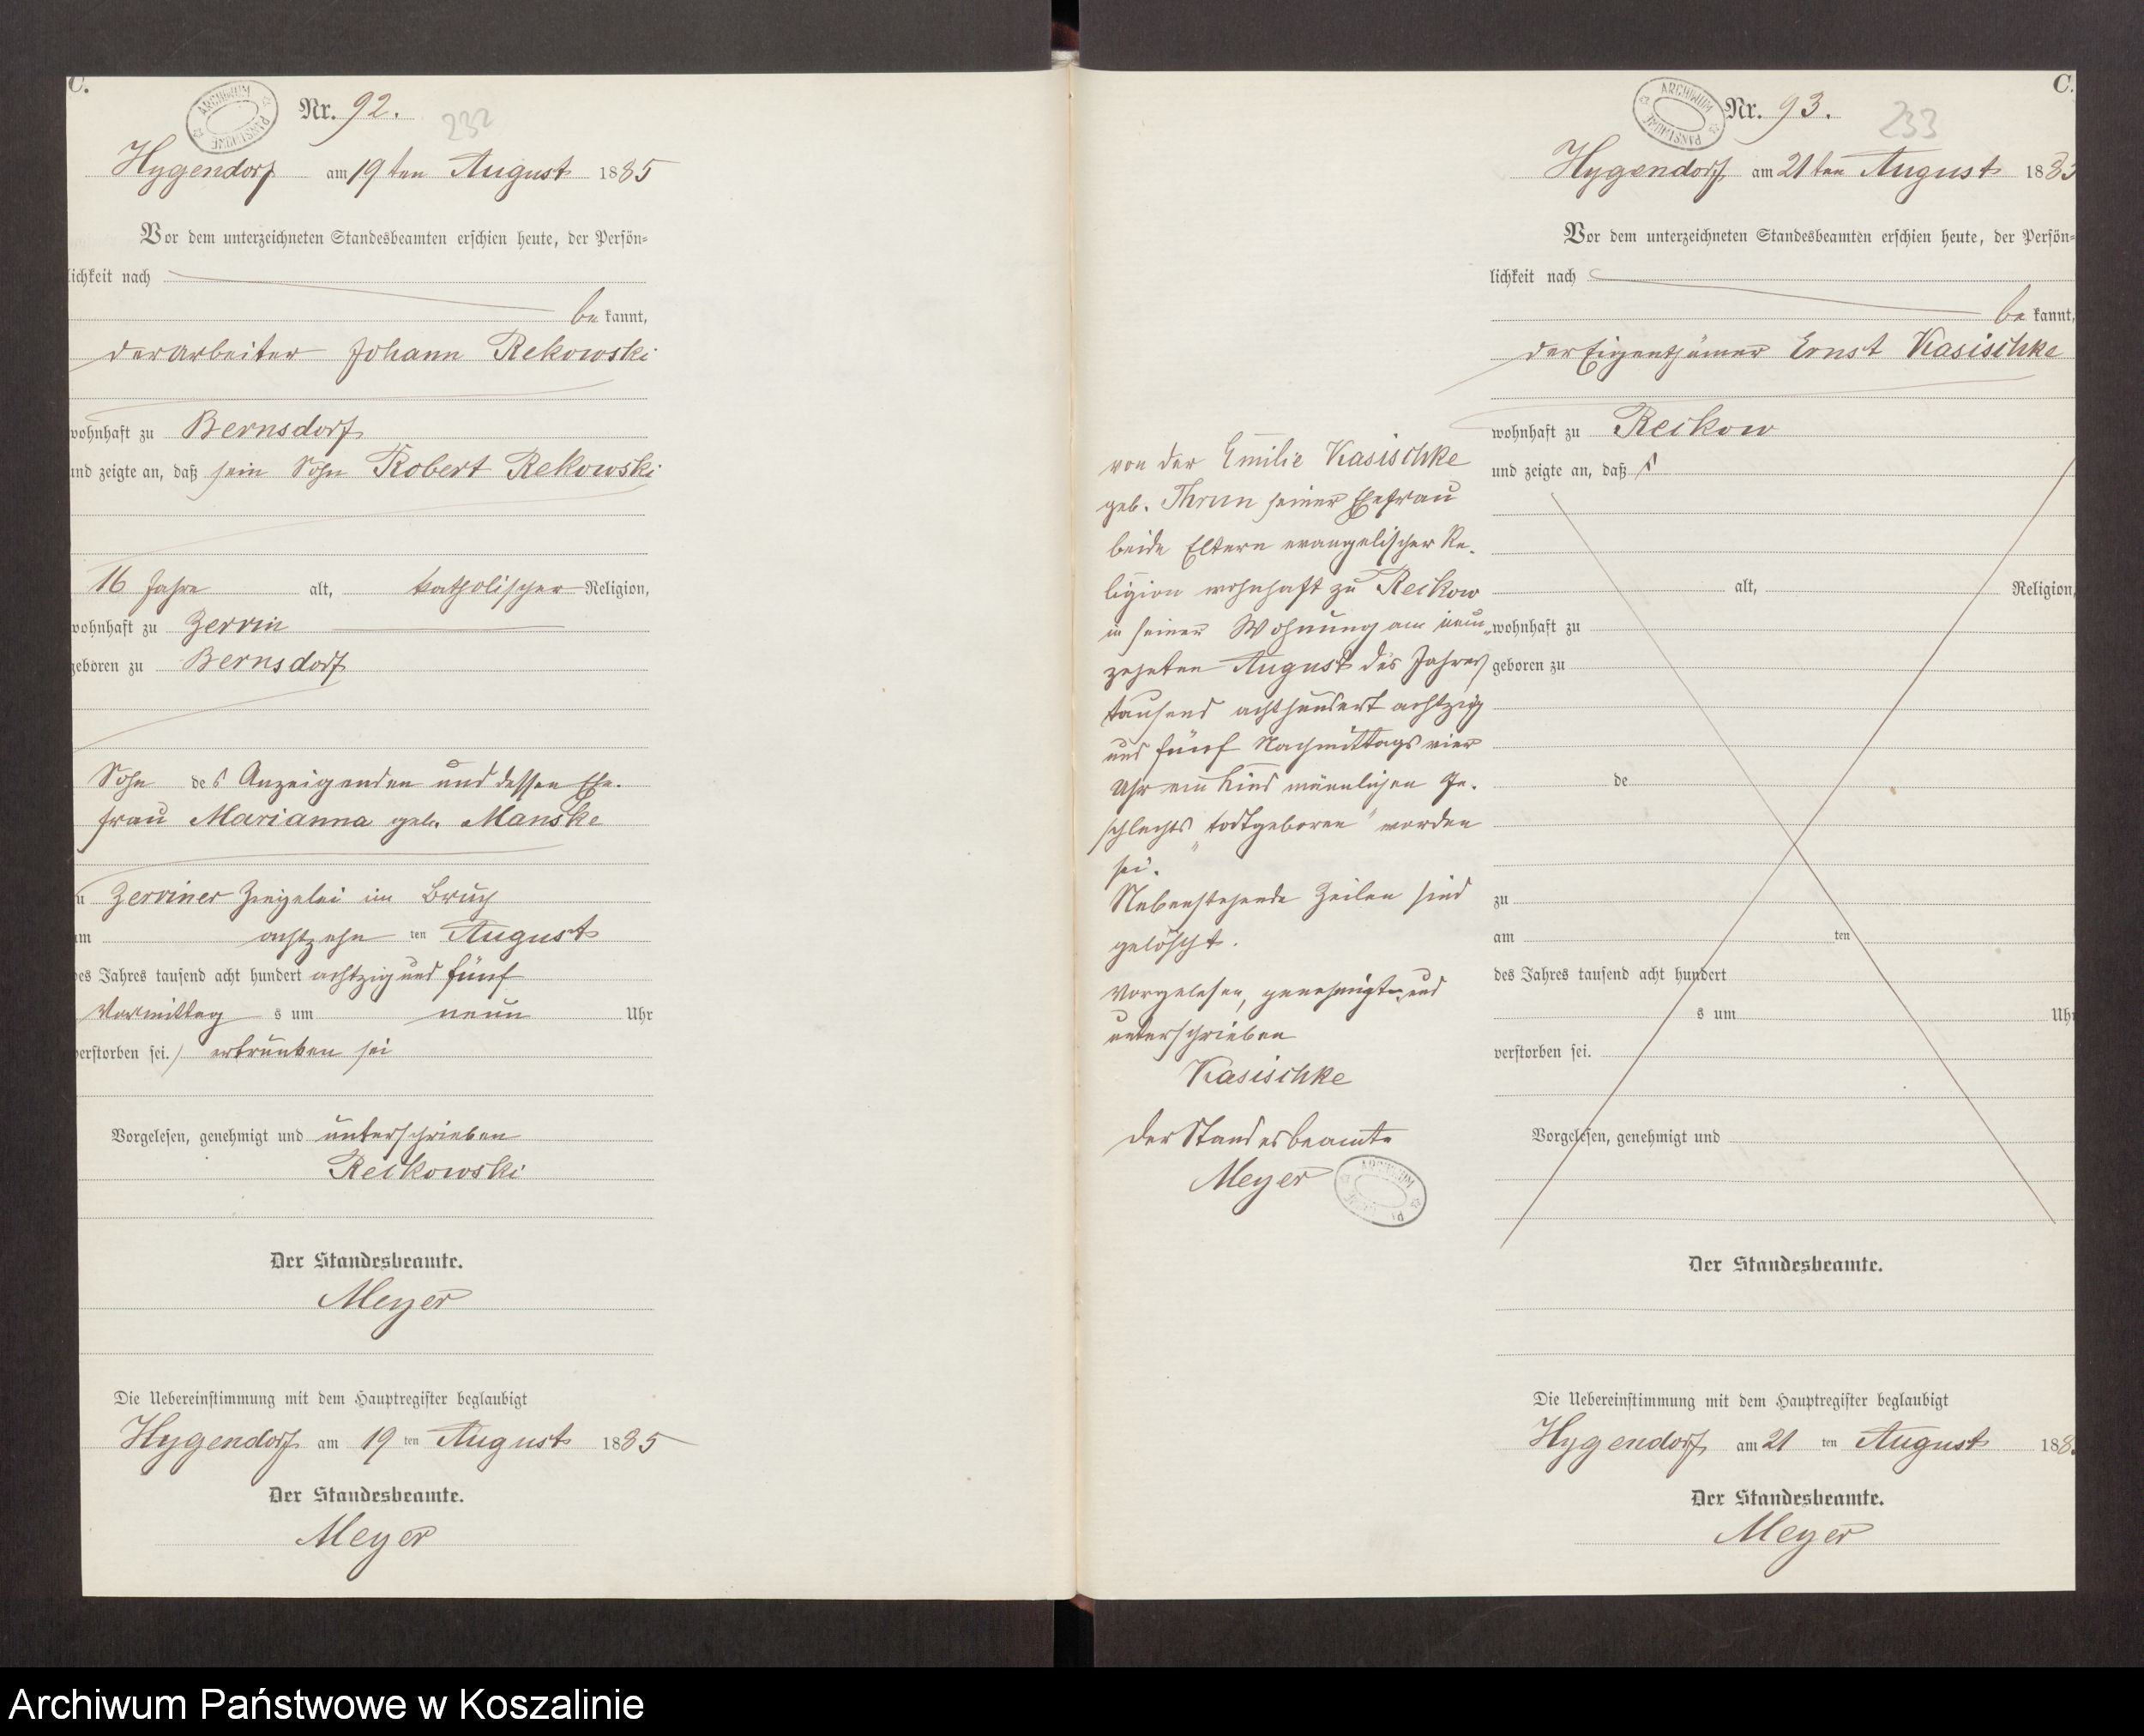 C.
ARCHIWUM PAŃSTWOWE
Nr. 92.
232
Hygendorf am 19ten August 1885
Vor dem unterzeichneten Standesbeamten erschien heute, der Persön-
lichkeit nach
be kannt,
der Arbeiter Johann Rekowski
wohnhaft zu Bernsdorf
und zeigte an, daß sein Sohn Robert Rekowski
16 Jahre alt, katholischer Religion,
wohnhaft zu Zerrin
geboren zu Bernsdorf
Sohn des Anzeigenden und dessen Ehe-
frau Marianna geb. Manske
zu Zerriner Ziegelei im Bruch
am achtzehn ten August
des Jahres tausend acht hundert achtzig und fünf
Vormittag s um neun Uhr
verstorben sei./ ertrunken sei
Vorgelesen, genehmigt und unterschrieben
Reikowski
Der Standesbeamte.
Meyer
Die Uebereinstimmung mit dem Hauptregister beglaubigt
Hygendorf am 19 ten August 1885
Der Standesbeamte.
Meyer
von der Emilie Kasischke
geb. Thrun seiner Ehefrau
beide Eltern evangelischer Re-
ligion wohnhaft zu Reckow
in seiner Wohnung am neun-
zehnten August des Jahres
tausend achthundert achtzig
und fünf Nachmittags vier
Uhr ein Kind männlichen Ge-
schlechts „todtgeboren“ worden
sei.
Nebenstehende Zeilen sind
gelöscht.
Vorgelesen, genehmigt und
unterschrieben
Kasischke
Der Standesbeamte
Meyer
ARCHIWUM
C.
ARCHIWUM PAŃSTWOWE
Nr. 93.
233
Hygendorf am 21ten August 1885
Vor dem unterzeichneten Standesbeamten erschien heute, der Persön-
lichkeit nach
be kannt,
der Eigenthümer Ernst Kasischke
wohnhaft zu Reckow
und zeigte an, daß
alt, Religion,
wohnhaft zu
geboren zu
de
zu
am ten
des Jahres tausend acht hundert
s um Uhr
verstorben sei.
Vorgelesen, genehmigt und
Der Standesbeamte.
Die Uebereinstimmung mit dem Hauptregister beglaubigt
Hygendorf am 21 ten August 188
Der Standesbeamte.
Meyer
Archiwum Państwowe w Koszalinie